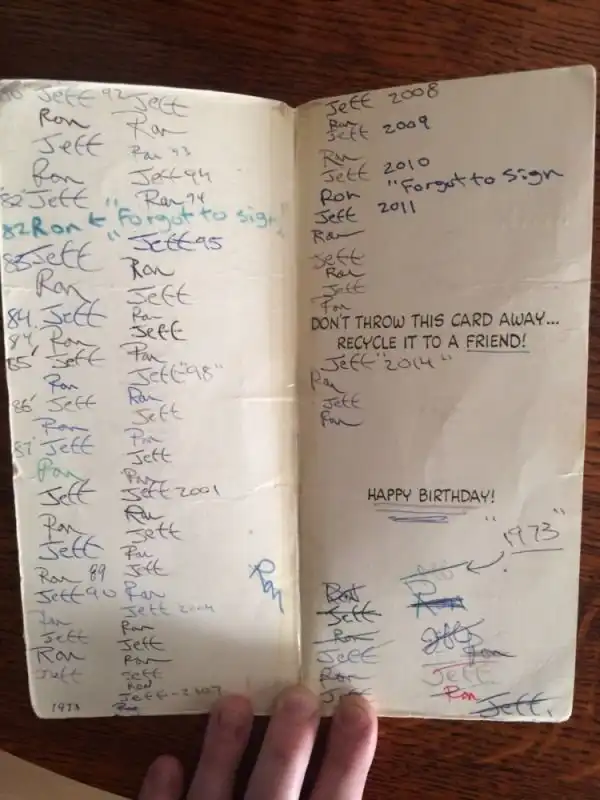 Jeff 92 Jeff
Ron Ron
Jeff Ron 93
Ron Jeff 94
'82 Jeff Ron 94
82 Ron ← "Forgot to sign"
83 Jeff " Jeff 95
Ron Ron
Jeff
84. Jeff Ron
84' Ron Jeff
85' Jeff Ron
Ron Jeff "98"
86' Jeff Ron
Ron Jeff
87' Jeff Ron
Ron Jeff
Ron
Jeff Jeff 2001
Ron Ron
Jeff Jeff
Ron
Ron 89 Jeff
Jeff 90 Ron
Ron Jeff 2004
Jeff Ron
Ron Jeff
Jeff Ron
Jeff
Ron
Jeff-2007
1973 Ron
Ron
Jeff 2008
Ron
Jeff 2009
Ron
Jeff 2010
Ron "Forgot to sign
Jeff 2011
Ron
Jeff
Ron
Jeff
Ron
DON'T THROW THIS CARD AWAY...
RECYCLE IT TO A FRIEND!
Jeff "2014"
Ron
Jeff
Ron
HAPPY BIRTHDAY!
"1973"
Ron Ron
Jeff
Ron Jeff
Jeff Ron
Ron Jeff
Jeff Ron
Jeff.